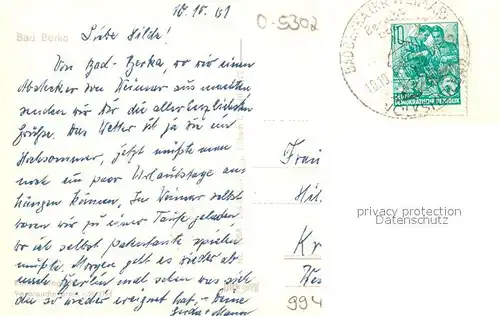 10.10.61
O-5302
Bad Berka
Liebe Hilde!
Von Bad-Berka, wo wir einen
Abstecher von Weimar aus machten
senden wir Dir die allerherzlichsten
Grüße. Das Wetter ist ja wie im
Hochsommer, jetzt müßte man
noch ein paar Urlaubstage an-
hängen können. In Weimar selbst
waren wir zu einer Taufe geladen,
wo ich selbst Patentante spielen
mußte. Morgen geht es wieder ab
nach Berlin mal sehen was sich
da so wieder ereignet hat, - Deine
10
DEMOKRATISCHE REPUBLIK
Frau
Hil
privacy protection
Datenschutz
Kr
Wes
994